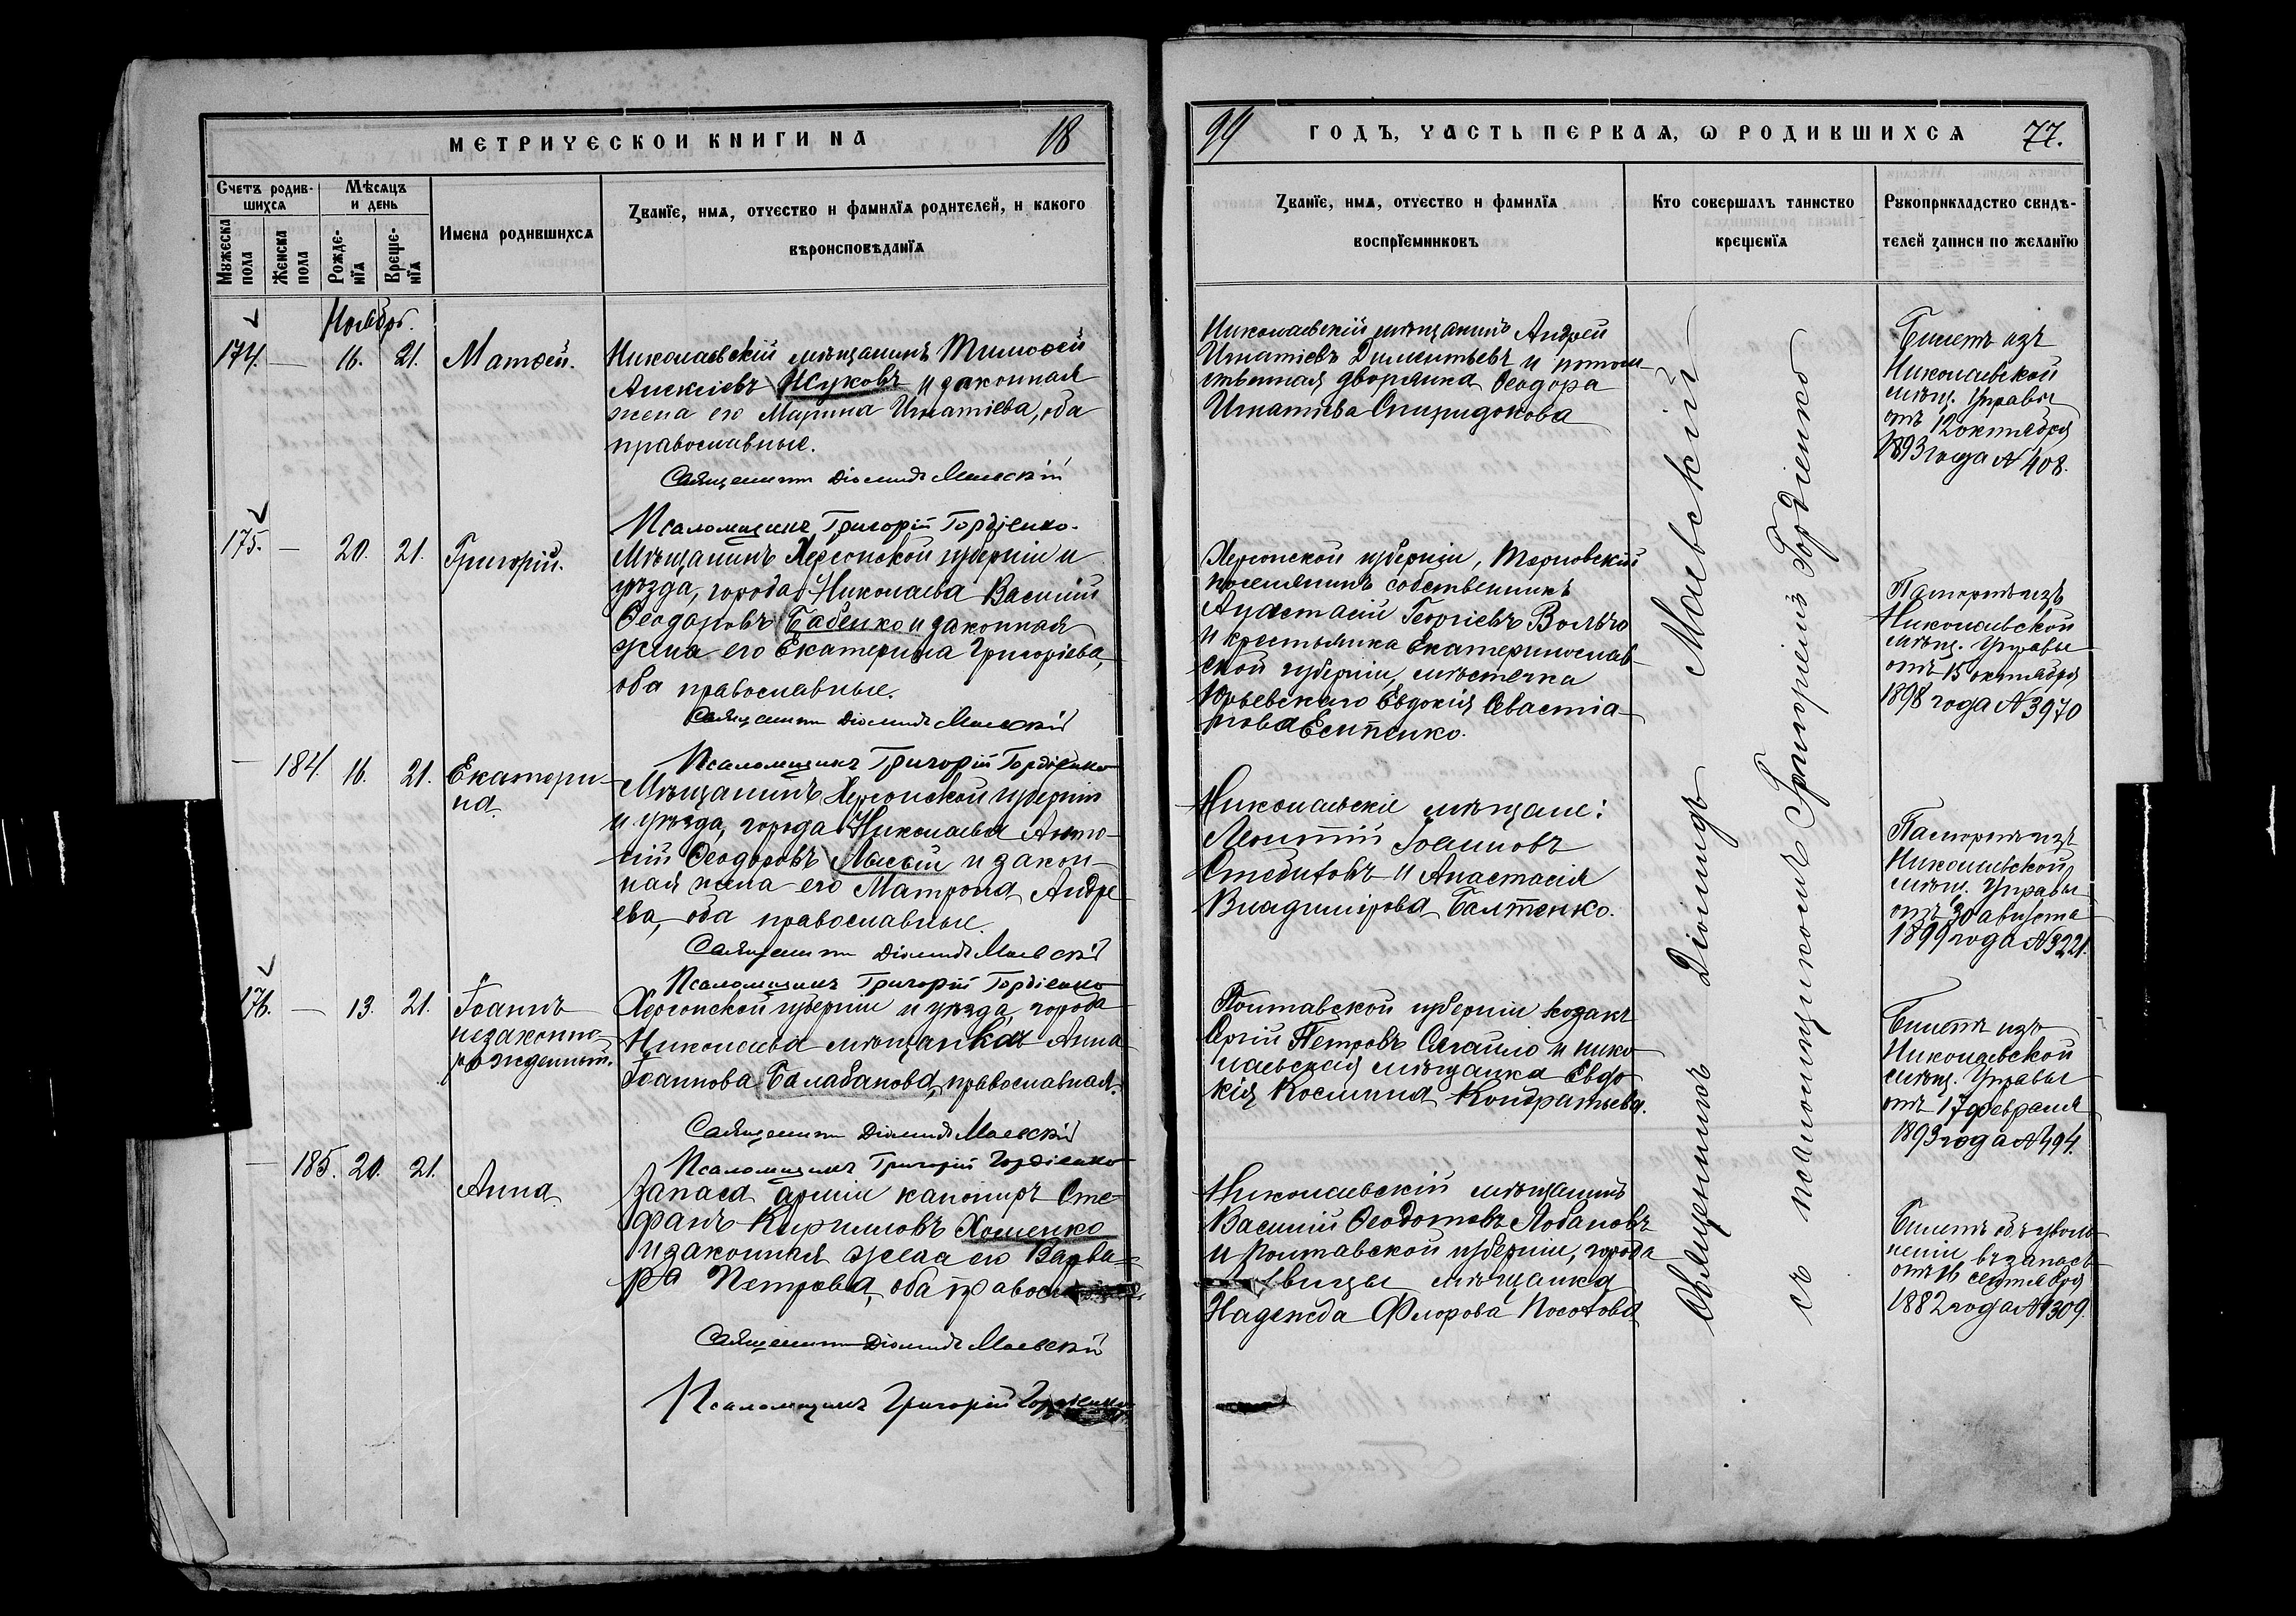 МЕТРИЧЕСКОЙ КНИГИ НА 18
Счетъ родив-
шихся
Мѣсяцъ
и день
Мужеска
пола
Женска
пола
Рожде-
нія
Креще-
нія
Имена родившихся
Званіе, имя, отчество и фамилія родителей, и какого
вѣроисповѣданія
Ноябрь.
174. — 16. 21. Матѳей.
Николаевскій мѣщанинъ Тимоѳей
Алексіевъ Жуковъ и законная
жена его Марина Игнатіева, оба
православные.
Священникъ Діомидъ Маевскій
Псаломщикъ Григорій Гордіенко.
175. — 20. 21. Григорій.
Мѣщанинъ Херсонской губерніи и
уѣзда, города Николаева Василій
Ѳеодоровъ Бабенко и законная
жена его Екатерина Григоріева,
оба православные.
Священникъ Діомидъ Маевскій
Псаломщикъ Григорій Гордіенко
— 184. 16. 21. Екатери-
на.
Мѣщанинъ Херсонской губерніи
и уѣзда, города Николаева Анто-
ній Ѳеодоровъ Лысый и закон-
ная жена его Матрона Андре
ева, оба православные.
Священникъ Діомидъ Маевскій
Псаломщикъ Григорій Гордіенко
176. — 13. 21. Іоаннъ
незаконно-
рожденный.
Херсонской губерніи и уѣзда, города
Николаева мѣщанка Анна
Іоаннова Балабанова, православная.
Священникъ Діомидъ Маевскій
Псаломщикъ Григорій Гордіенко
— 185. 20. 21. Анна
Запаса арміи канониръ Сте-
фанъ Кирилловъ Хоменко
и законная жена его Варва-
ра Петрова, оба
Священникъ Діомидъ Маевскій
Псаломщикъ Григорій Гордіенко
99 ГОДЪ, ЧАСТЬ ПЕРВАЯ, О РОДИВШИХСЯ 77.
Званіе, имя, отчество и фамилія
воспріемниковъ
Кто совершалъ таинство
крещенія
Рукоприкладство свидѣ-
телей записи по желанію
Николаевскій мѣщанинъ Андрей
Игнатіевъ Диментьевъ и потом-
ственная дворянка Ѳеодора
Игнатіева Спиридонова
Херсонской губерніи, Терновскій
поселянинъ собственникъ
Анастасій Георгіевъ Волѣго
и крестьянка Екатеринослав-
ской губерніи, мѣстечка
Юрьевскаго Евдокія Севастіа-
нова Есипенко.
Николаевскіе мѣщане:
Леонтій Іоанновъ
и Анастасія
Владимірова Балтенко.
Полтавской губерніи козакъ
Сергій Петровъ Сагайло и нико-
лаевская мѣщанка Евдо-
кія Космина Кондратьева.
Николаевскій мѣщанинъ
Василій Ѳеодотовъ Лобановъ
и Полтавской губерніи, города
мѣщанка
Надежда Флорова
Священникъ Діомидъ Маевскій
съ псаломщикомъ Григоріемъ Гордіенко
Билетъ изъ
Николаевской
мѣщ. Управы
отъ 12 октября
1893 года № 408.
Паспортъ изъ
Николаевской
мѣщ. Управы
отъ 15 октября
1898 года № 3970
Паспортъ изъ
Николаевской
мѣщ. Управы
отъ 30 августа
1899 года № 3221.
Билетъ изъ
Николаевской
мѣщ. Управы
отъ 17 февраля
1893 года № 494.
Билетъ объ уволь-
неніи въ запасъ
отъ 16 сентября
1882 года № 1309.